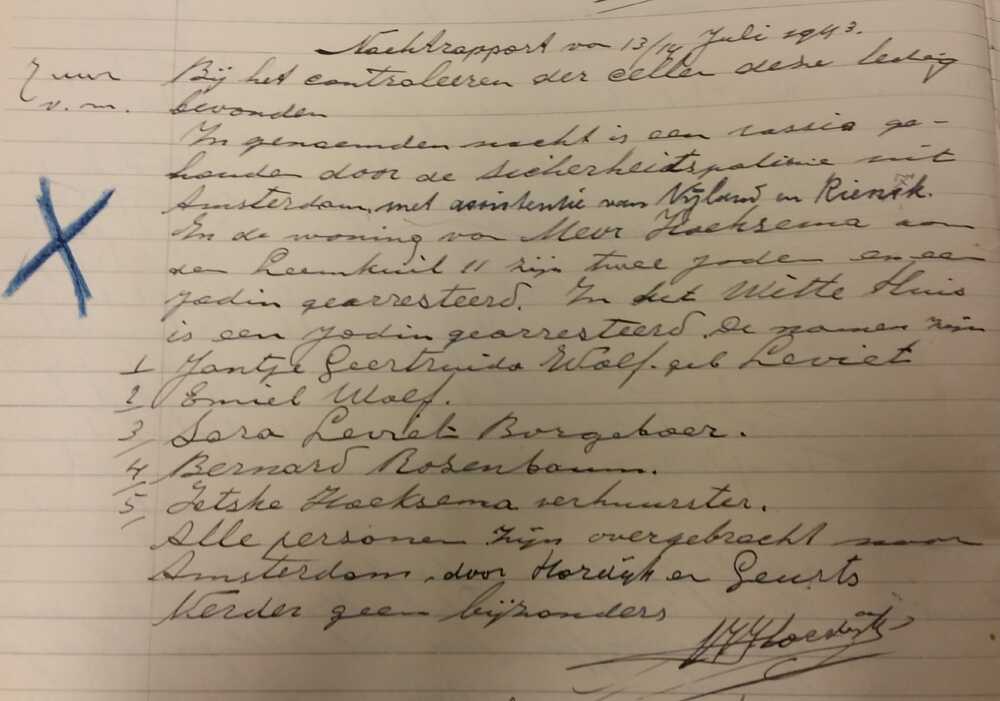 Nachtrapport van 13/14 Juli 1943.
7 uur Bij het controleeren der cellen deze ledig
v.m. bevonden
In genoemden nacht is een razzia ge-
houden door de Sicherheitspolizie uit
Amsterdam, met assistentie van Vijland en Rienck.
In de woning van Mevr Hoeksema aan
den Leemkuil 11 zijn twee joden en een
jodin gearresteerd. In het Witte Huis
is een jodin gearresteerd. De namen zijn
1 Jantje Geertruida Wolf. geb Leviet
2 Emiel Wolf.
3 Sara Leviet Borgeboer.
4 Bernard Rosenbaum.
5 Jetske Hoeksema verhuurster.
Alle personen zijn overgebracht naar
Amsterdam, door Hordijk en Geurts
Verder geen bijzonders